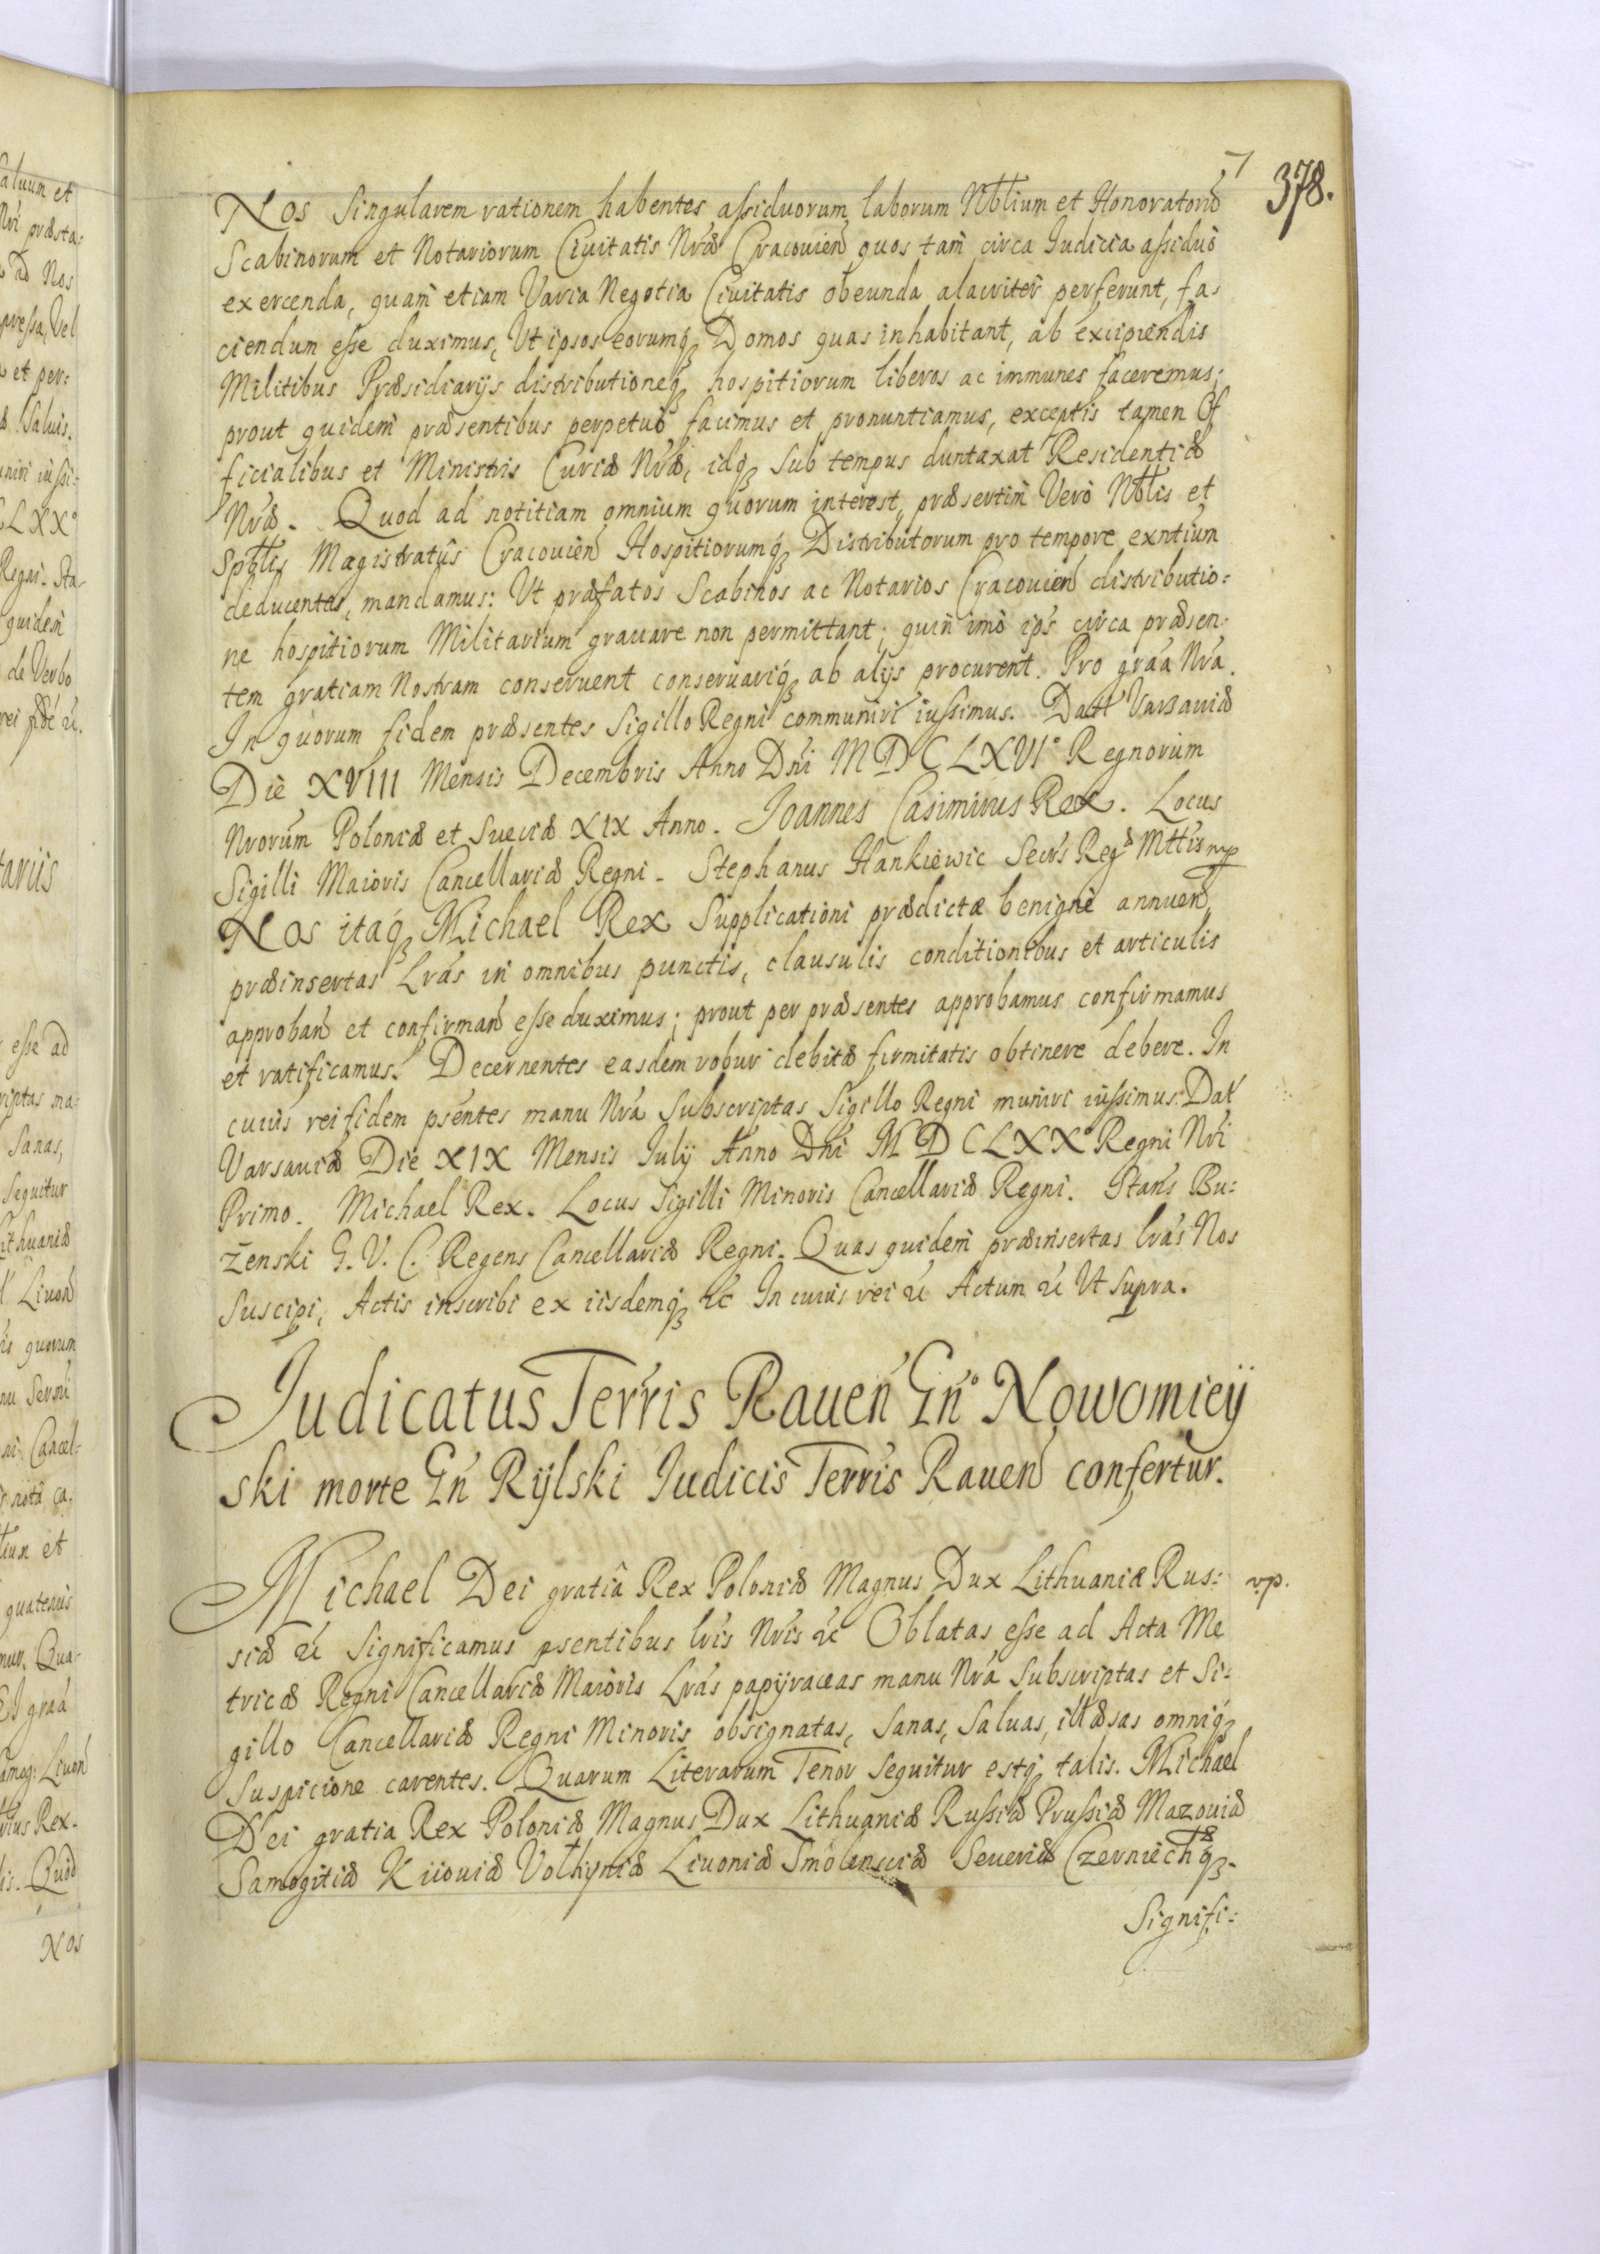 378.
Nos Singularem rationem habentes assiduorum laborum Nbilium et Honoratorū
Scabinorum et Notariorum Civitatis Nræ Cracovień quos tam circa Iudicia assiduò
exercenda, quam etiam Varia Negotia Civitatis obeunda alacriter perferunt, fa-
ciendum esse duximus, Ut ipsos eorumq₃ Domos quas inhabitant, ab excipiendis
Militibus Præsidiarijs distributioneq₃ hospitiorum liberos ac immunes faceremus;
prout quidem præsentibus perpetuò facimus et pronuntiamus, exceptis tamen Of
ficialibus et Ministris Curiæ Nræ, idq₃ Sub tempus duntaxat Residentiæ
Nræ. Quod ad notitiam omnium quorum interest, præsertim Verò Nbilis et
Spblis Magistratûs Cracovień Hospitiorumq₃ Distributorum pro tempore exntium
deducentes, mandamus: Ut præfatos Scabinos ac Notarios Cracovień distributio:
ne hospitiorum Militarium gravare non permittant; quin imò ips circa præsen-
tem gratiam Nostram conservent conservariq₃ ab alijs procurent. Pro graa Nra.
In quorum fidem præsentes Sigillo Regni communiri iussimus. Datt Varsaviæ
Die XVIII Mensis Decembris Anno Dni MDCLXVI° Regnorum
Nrorum Poloniæ et Sueciæ XIX Anno. Ioannes Casimirus Rex. Locus
Sigilli Maioris Cancellariæ Regni. Stephanus Hankiewic Secrs Regæ Mttis mp
Nos itaq₃ Michael Rex Supplicationi prædictæ benignè annueń
præinsertas Lras in omnibus punctis, clausulis conditionibus et articulis
approbań et confirmań esse duximus; prout per præsentes approbamus confirmamus
et ratificamus. Decernentes easdem robur debitæ firmitatis obtinere debere. In
cuius rei fidem psentes manu Nra Subscriptas Sigillo Regni muniri iussimus. Dat
Varsaviæ Die XIX Mensis Iulij Anno Dni MDCLXX° Regni Nri
Primo. Michael Rex. Locus Sigilli Minoris Cancellariæ Regni. Stans Bu:
żenski G. V. C. Regens Cancellariæ Regni. Quas quidem præinsertas lras Nos
Suscipi, Actis inscribi ex iisdemq₃ &c In cuius rei &c Actum &c Ut Supra.
Iudicatus Terris Raveń Gn° Nowomieÿ
ski morte Gń Rÿlski Iudicis Terris Raveń confertur.
Michael Dei gratiâ Rex Poloniæ Magnus Dux Lithuaniæ Rus: vp.
siæ &c Significamus psentibus lris Nris &c Oblatas esse ad Acta Me
tricæ Regni Cancellariæ Maioris Lras papÿraceas manu Nra Subscriptas et Si:
gillo Cancellariæ Regni Minoris obsignatas, Sanas, Salvas, illæsas omniq₃
Suspicione carentes. Quarum Literarum Tenor Sequitur estq₃ talis. Michael
Dei gratia Rex Poloniæ Magnus Dux Lithuaniæ Russiæ Prussiæ Mazoviæ
Samogitiæ Kiioviæ Volhÿniæ Livoniæ Smolensciæ Severiæ Czerniechæq₃.
Signifi: